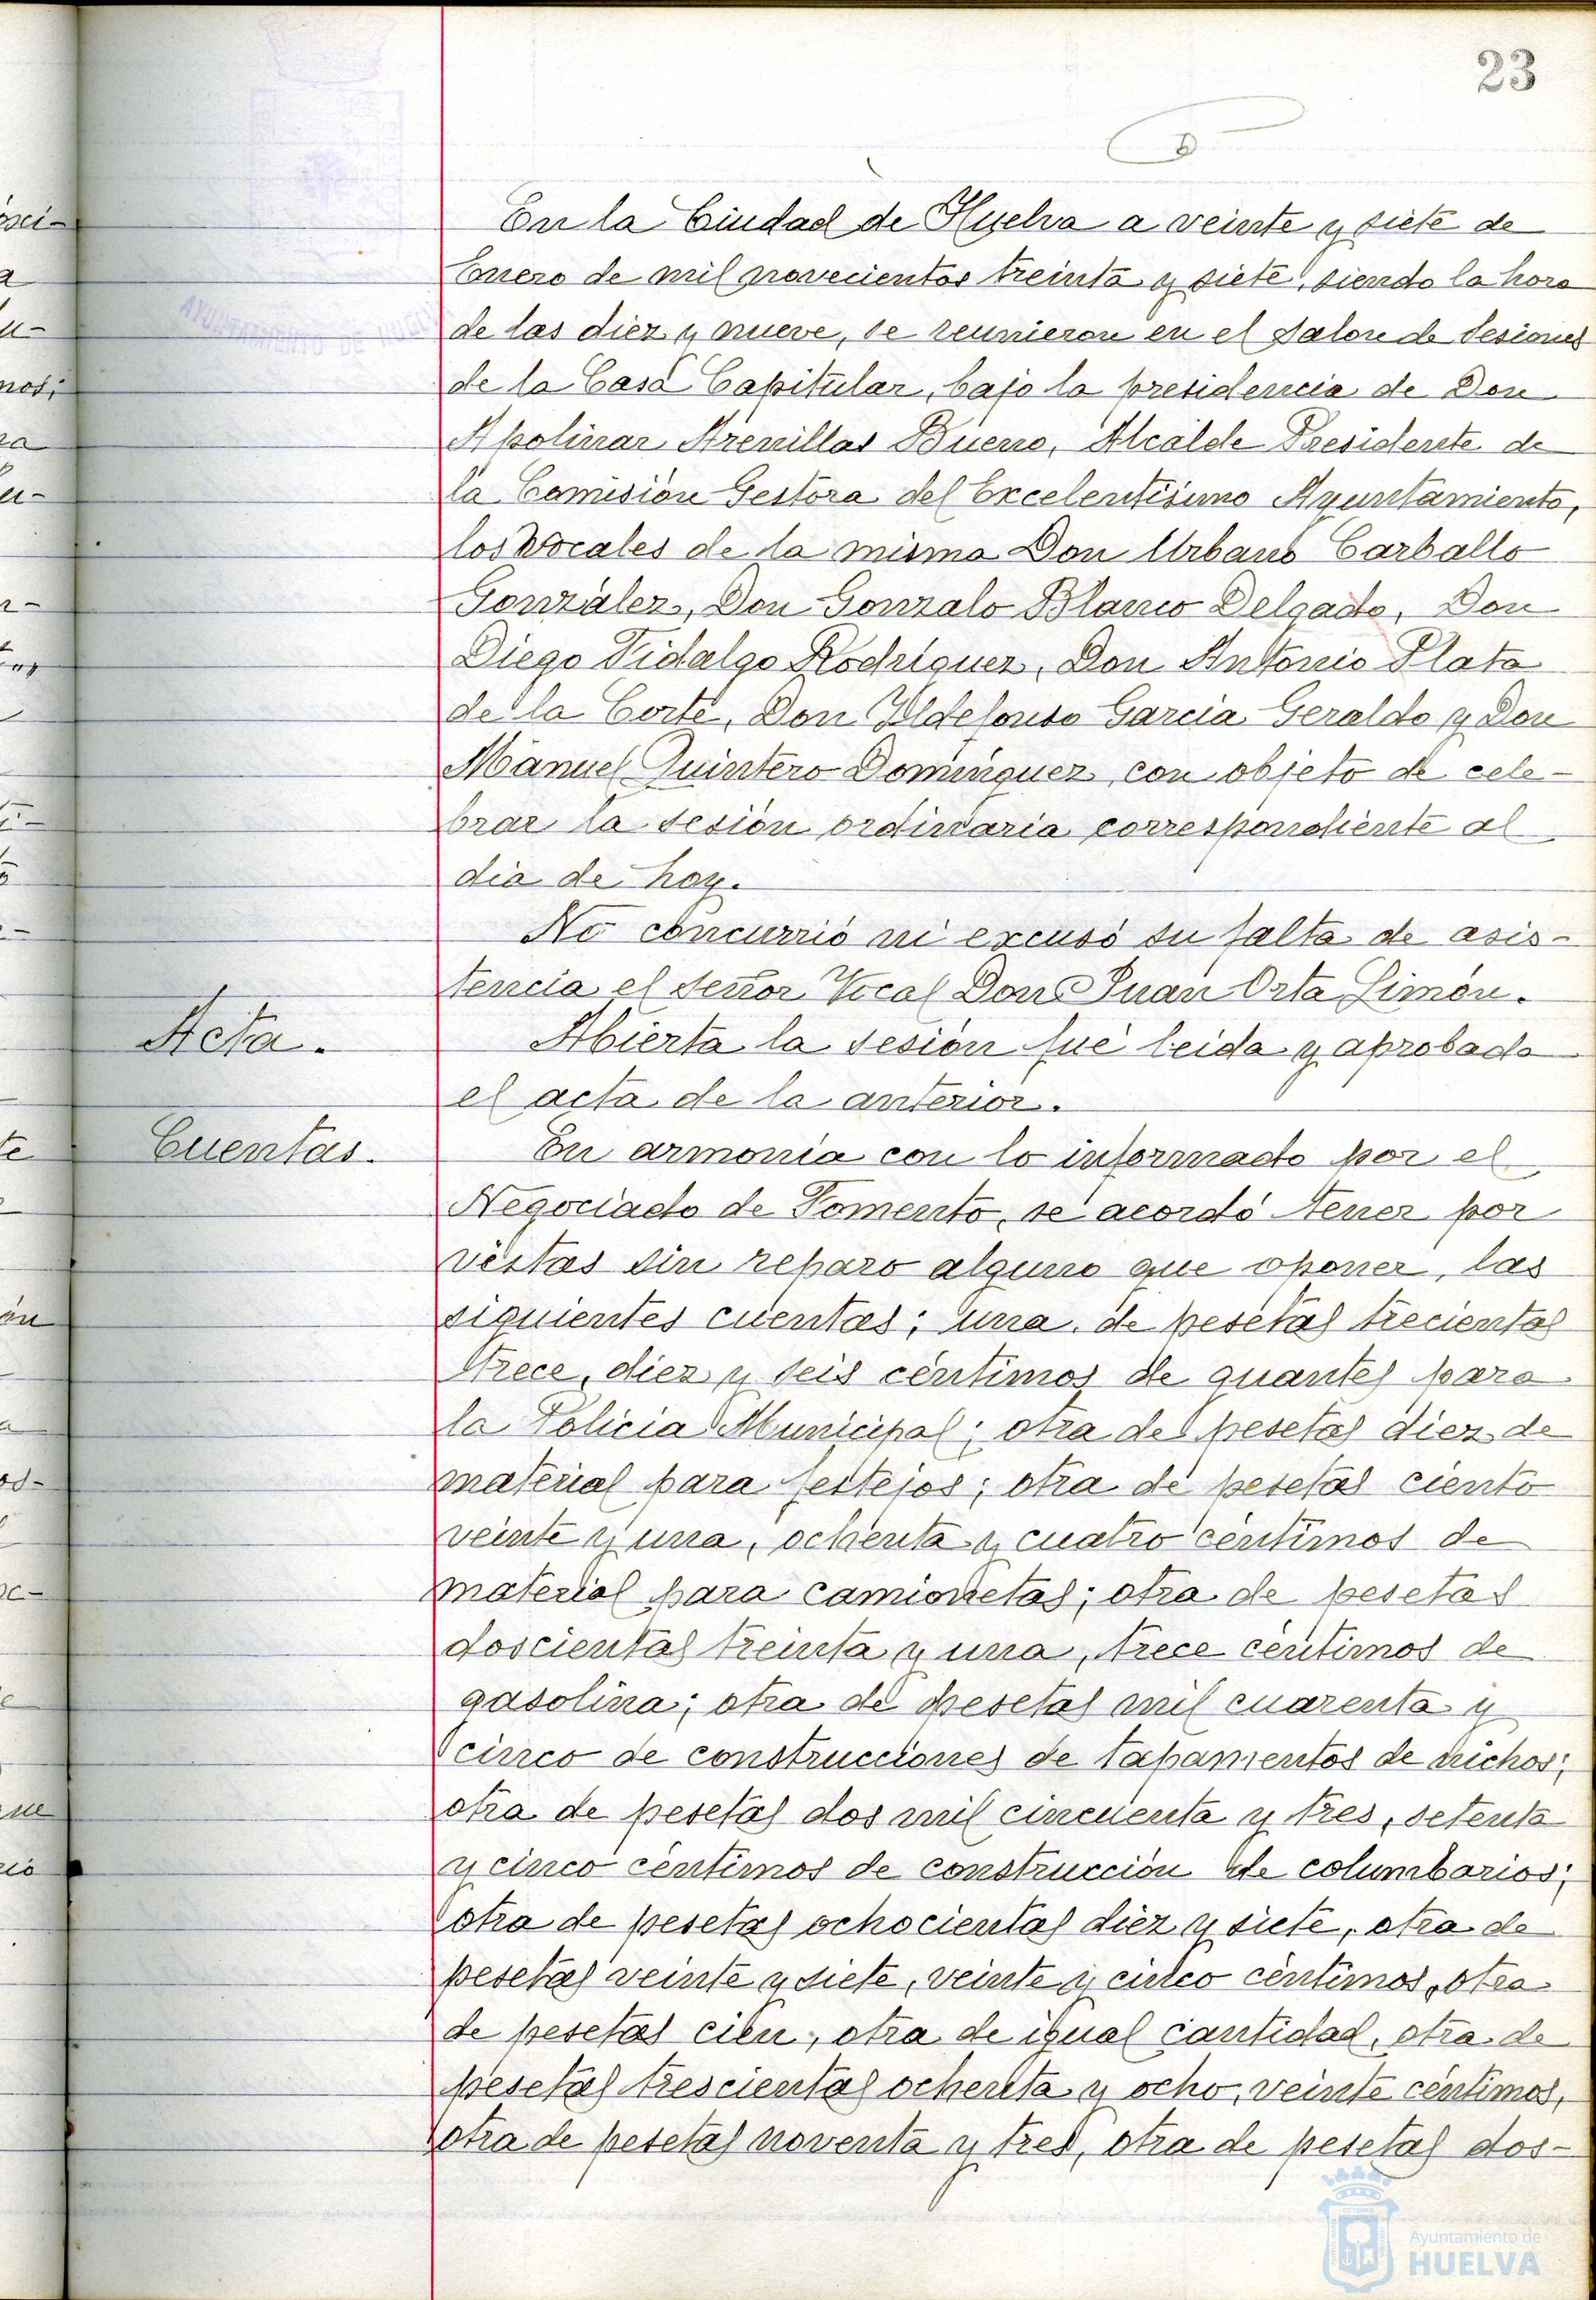 23
En la Ciudad de Huelva a veinte y siete de
Enero de mil novecientos treinta y siete, siendo la hora
de las diez y nueve, se reunieron en el Salon de Sesiones
de la Casa Capitular, bajo la presidencia de Don
Apolinar Arenillas Bueno, Alcalde Presidente de
la Comisión Gestora del Excelentísimo Ayuntamiento,
los Vocales de la misma Don Urbano Carballo
González, Don Gonzalo Blanco Delgado, Don
Diego Fidalgo Rodríguez, Don Antonio Plata
de la Corte, Don Ildefonso García Geraldo y Don
Manuel Quintero Domínguez, con objeto de cele-
brar la sesión ordinaria correspondiente al
dia de hoy.
No concurrió ni excusó su falta de asis-
tencia el señor Vocal Don Juan Orta Simón.
Acta.
Abierta la sesión fué leida y aprobada
el acta de la anterior.
Cuentas.
En armonía con lo informado por el
Negociado de Fomento, se acordó tener por
vistas sin reparo alguno que oponer, las
siguientes cuentas; una de pesetas trecientas
trece, diez y seis céntimos de guantes para
la Policia Municipal; otra de pesetas diez de
material para festejos; otra de pesetas ciento
veinte y una, ochenta y cuatro céntimos de
material para camionetas; otra de pesetas
doscientas treinta y una, trece céntimos de
gasolina; otra de pesetas mil cuarenta y
cinco de construcciones de tapamentos de nichos;
otra de pesetas dos mil cincuenta y tres, setenta
y cinco céntimos de construcción de columbarios;
otra de pesetas ochocientas diez y siete, otra de
pesetas veinte y siete, veinte y cinco céntimos, otra
de pesetas cien, otra de igual cantidad, otra de
pesetas trescientas ochenta y ocho, veinte céntimos,
otra de pesetas noventa y tres, otra de pesetas dos-
AYUNTAMIENTO DE HUELVA
Ayuntamiento de
HUELVA